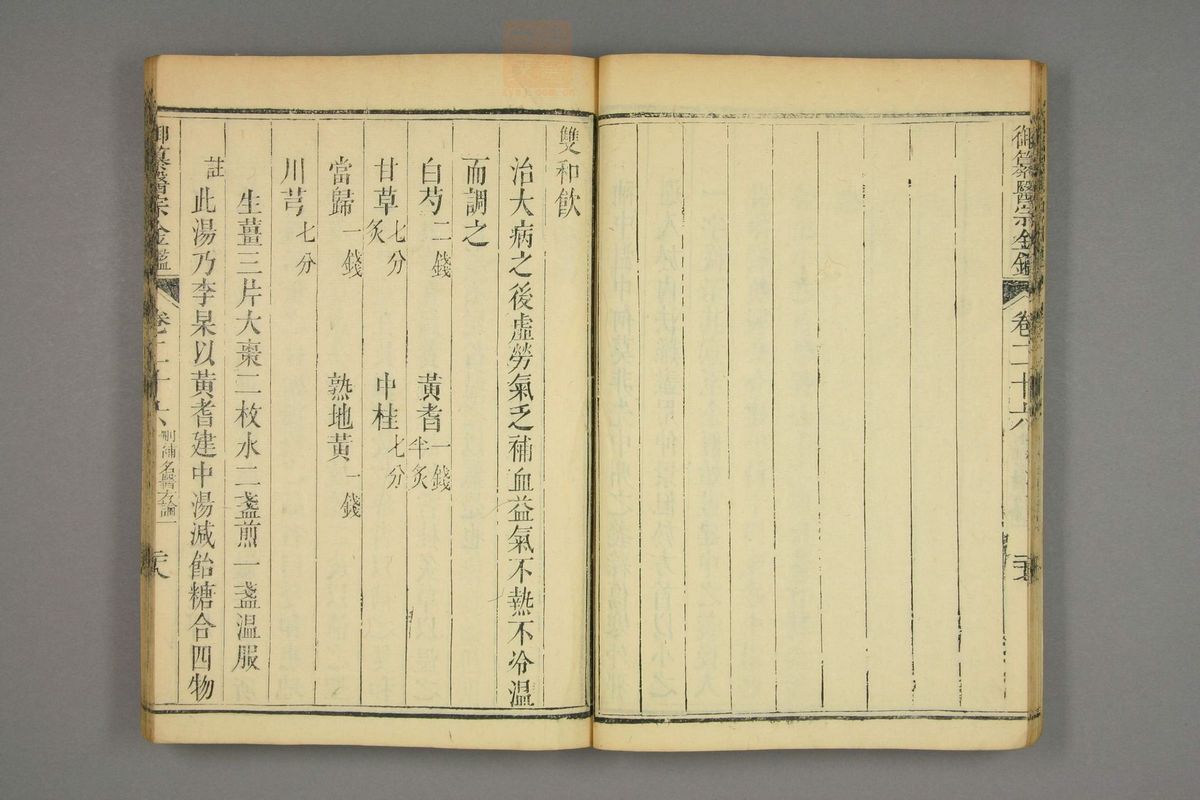 御纂醫宗金鑑 卷二十六
雙和飲
治大病之後虛勞氣乏補血益氣不熱不冷溫
而調之
白芍二錢 黃耆一錢半炙
甘草七分炙 中桂七分
當歸一錢 熟地黃一錢
川芎七分
生薑三片大棗二枚水二盞煎一盞溫服
註此湯乃李杲以黃耆建中湯減飴糖合四物
御纂醫宗金鑑 卷二十六 刪補名醫方論一